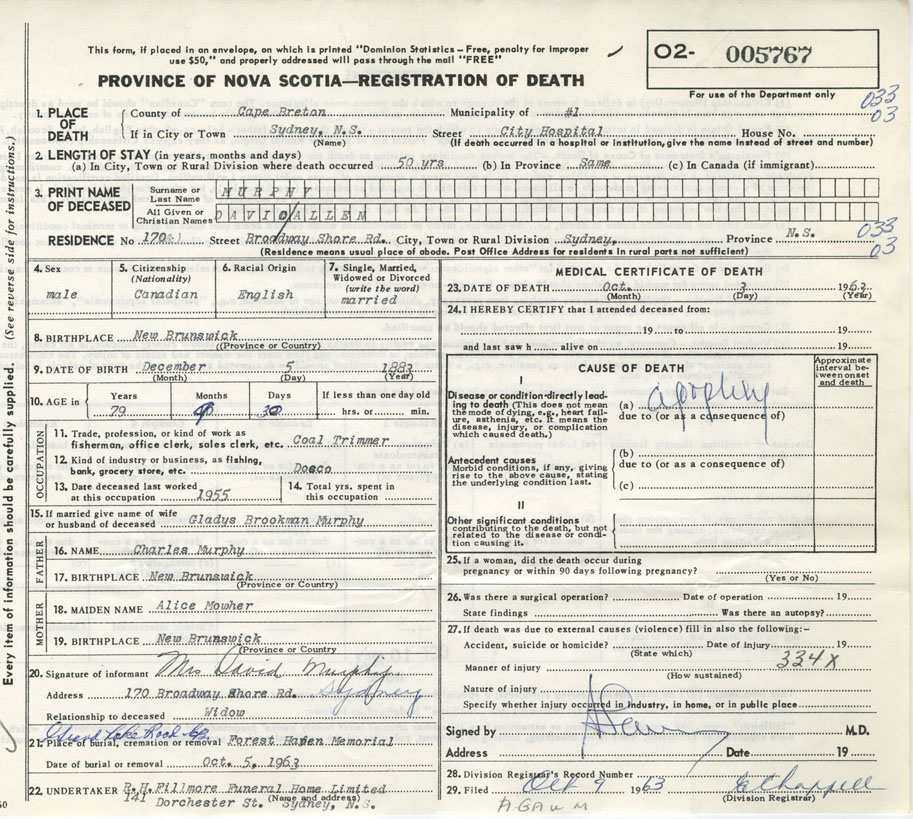 This form, if placed in an envelope, on which is printed "Dominion Statistics – Free, penalty for improper
use $50," and properly addressed will pass through the mail "FREE"
O2- 005767
PROVINCE OF NOVA SCOTIA—REGISTRATION OF DEATH
For use of the Department only
033
03
1. PLACE OF DEATH County of Cape Breton Municipality of #1
If in City or Town Sydney, N.S. Street City Hospital House No.
(Name) (If death occurred in a hospital or institution, give the name instead of street and number)
2. LENGTH OF STAY (in years, months and days)
(a) In City, Town or Rural Division where death occurred 50 yrs (b) In Province Same (c) In Canada (if immigrant)
3. PRINT NAME OF DECEASED Surname or Last Name MURPHY
All Given or Christian Names DAVID/ALLEN
RESIDENCE No 170 Street Broadway Shore Rd. City, Town or Rural Division Sydney, Province N.S.
(Residence means usual place of abode. Post Office Address for residents in rural parts not sufficient)
033
03
4. Sex male
5. Citizenship (Nationality) Canadian
6. Racial Origin English
7. Single, Married, Widowed or Divorced (write the word) married
8. BIRTHPLACE New Brunswick
((Province or Country)
9. DATE OF BIRTH December 5 1883
(Month) (Day) (Year)
10. AGE in Years Months Days If less than one day old
79 hrs. or min.
OCCUPATION
11. Trade, profession, or kind of work as
fisherman, office clerk, sales clerk, etc. Coal Trimmer
12. Kind of industry or business, as fishing,
bank, grocery store, etc. Dosco
13. Date deceased last worked
at this occupation 1955
14. Total yrs. spent in
this occupation
15. If married give name of wife
or husband of deceased Gladys Brookman Murphy
FATHER
16. NAME Charles Murphy
17. BIRTHPLACE New Brunswick
(Province or Country)
MOTHER
18. MAIDEN NAME Alice Mowher
19. BIRTHPLACE New Brunswick
(Province or Country
20. Signature of informant Mrs David Murphy
Address 170 Broadway Shore Rd. Sydney
Relationship to deceased Widow
21. Place of burial, cremation or removal Forest Haven Memorial
Date of burial or removal Oct. 5, 1963
22. UNDERTAKER Fillmore Funeral Home Limited
(Name and address)
141 Dorchester St. Sydney, N.S.
Every item of information should be carefully supplied. (See reverse side for instructions.)
MEDICAL CERTIFICATE OF DEATH
23. DATE OF DEATH Oct. 3 1963
(Month) (Day) (Year)
24. I HEREBY CERTIFY that I attended deceased from:
19 to 19
and last saw h alive on 19
CAUSE OF DEATH
Approximate interval between onset and death
I
Disease or condition directly leading to death (This does not mean
the mode of dying, e.g., heart failure, asthenia, etc. It means the
disease, injury, or complication
which caused death.)
(a) apoplexy
due to (or as a consequence of)
Antecedent causes
Morbid conditions, if any, giving
rise to the above cause, stating
the underlying condition last.
(b)
due to (or as a consequence of)
(c)
II
Other significant conditions
contributing to the death, but not
related to the disease or condition causing it.
25. If a woman, did the death occur during
pregnancy or within 90 days following pregnancy?
(Yes or No)
26. Was there a surgical operation? Date of operation 19
State findings Was there an autopsy?
27. If death was due to external causes (violence) fill in also the following:–
Accident, suicide or homicide? Date of injury 19
(State which)
334X
Manner of injury
(How sustained)
Nature of injury
Specify whether injury occurred in industry, in home, or in public place
Signed by M.D.
Address Date 19
28. Division Registrar's Record Number
29. Filed Oct 9 1963
(Division Registrar)